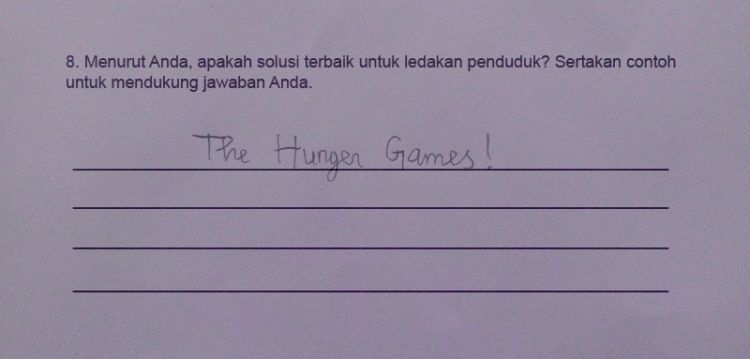 8. Menurut Anda, apakah solusi terbaik untuk ledakan penduduk? Sertakan contoh
untuk mendukung jawaban Anda.
The Hunger Games!